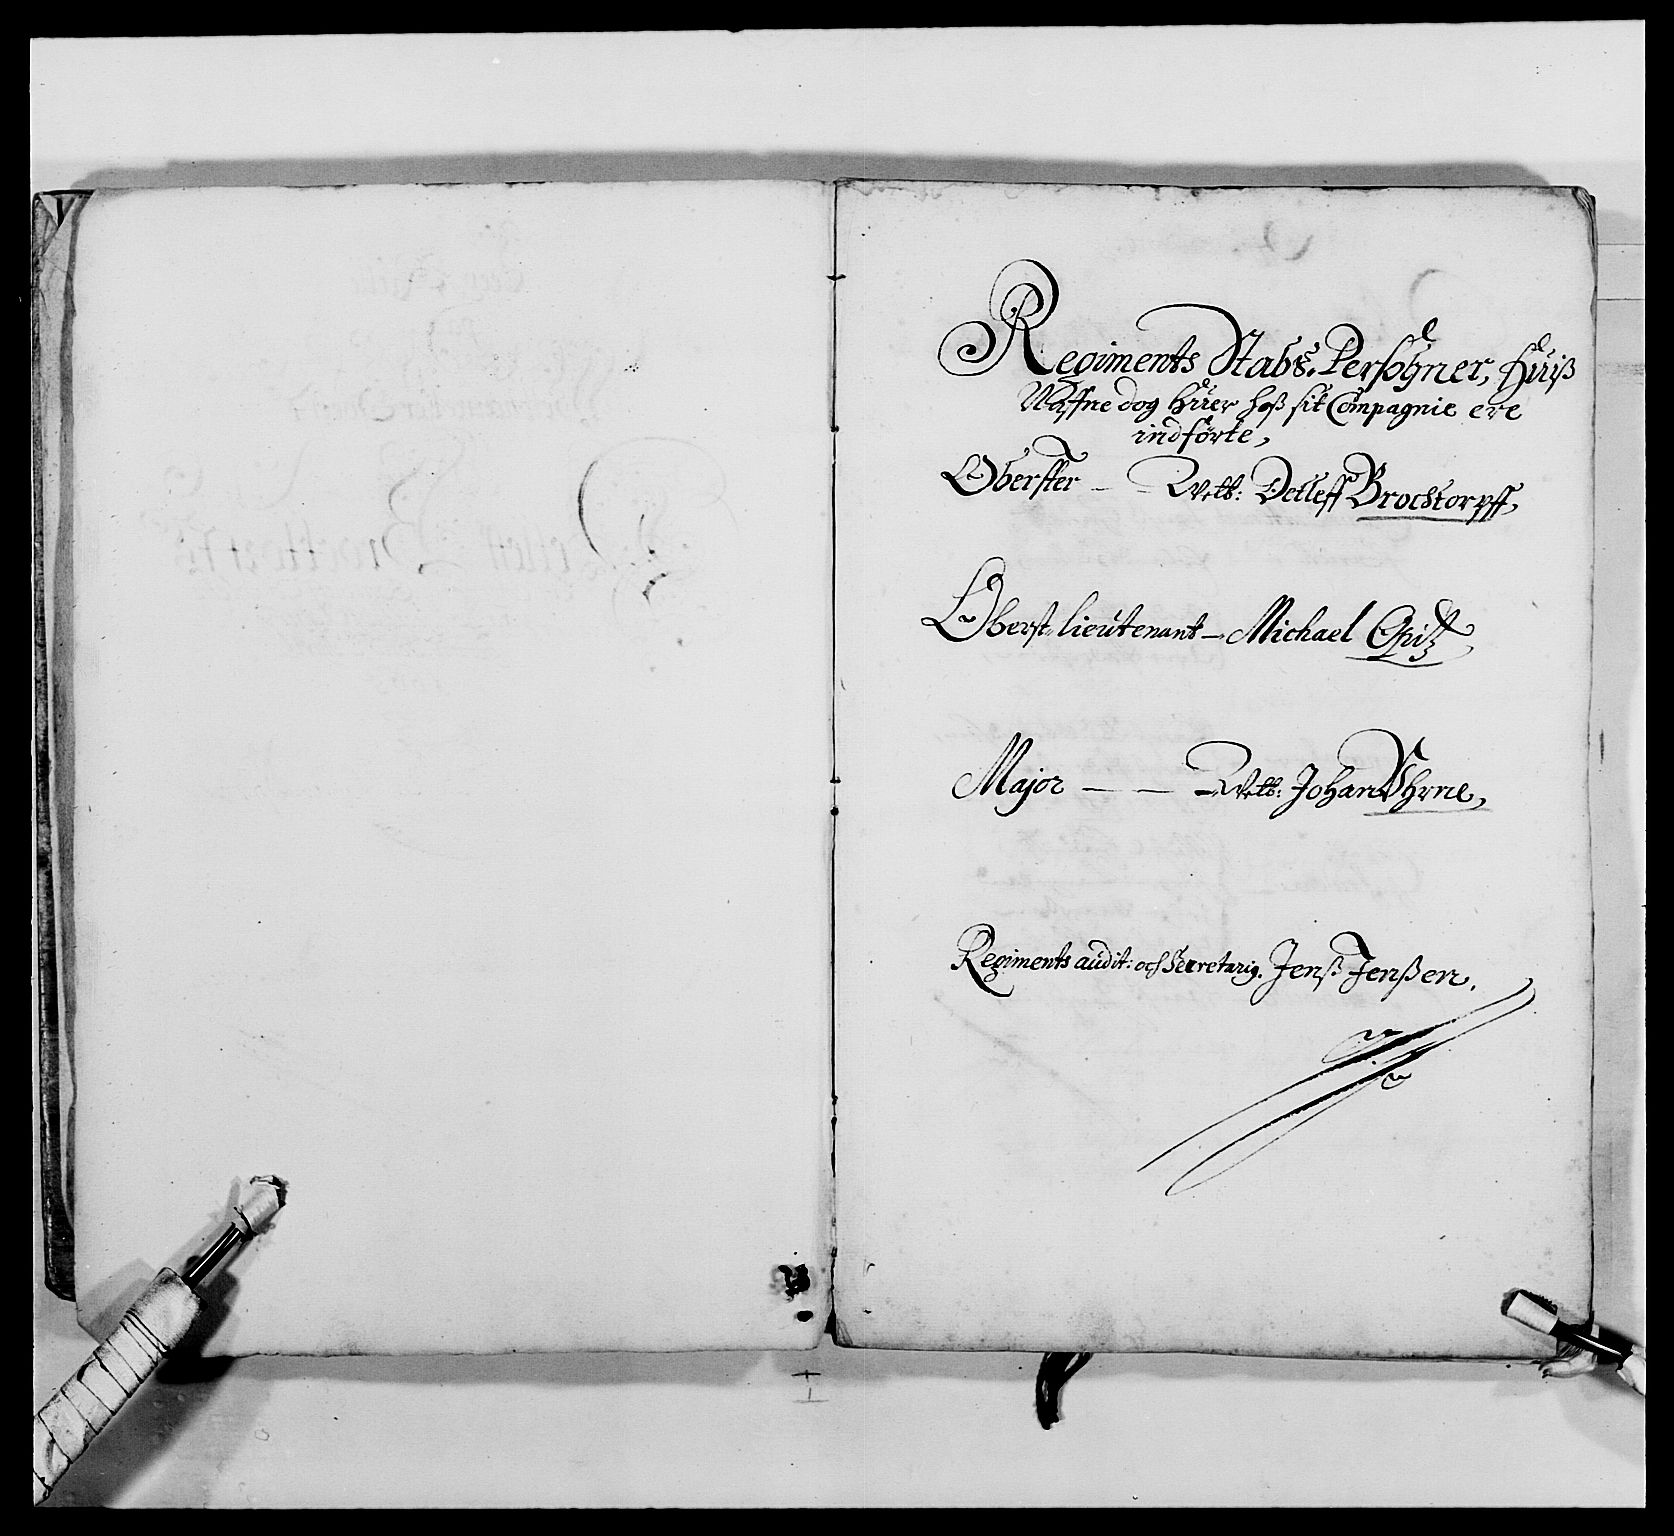 Regiments Stabs Persohner, Huiß
Naffne dog huer hoß sit Compagnie ere
indförte,
Oberster — Welb: Detleff Brochtorpff,
Oberst lieutenant — Michael Opitz,
Major — — Welb: Johan Vhrne,
Regiments audit: och Secretarig. Jenß Jenßen.